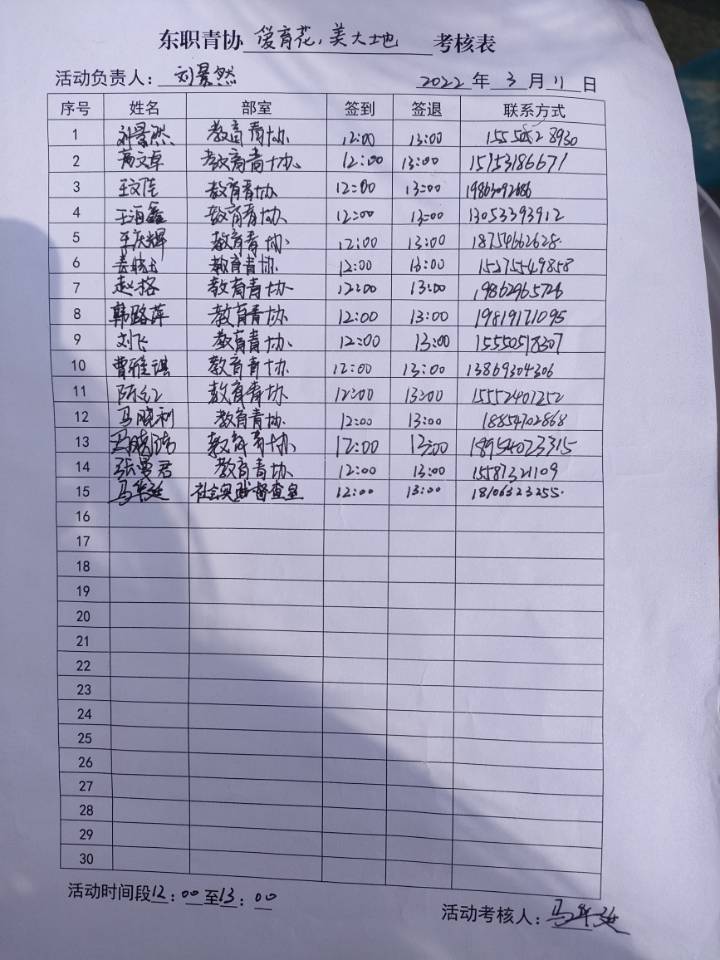 东职青协 爱育花,美大地 考核表
活动负责人: 刘景然 2022 年 3 月 11 日
序号 姓名 部室 签到 签退 联系方式
1 刘景然 教育青协 12:00 13:00 15550828930
2 高文卓 教育青协 12:00 13:00 15753186671
3 王文佳 教育青协 12:00 13:00 19863092686
4 王海鑫 教育青协 12:00 13:00 13053393912
5 辛庆辉 教育青协 12:00 13:00 18754662628
6 教育青协 12:00 13:00 15275549858
7 赵格 教育青协 12:00 13:00 19862965726
8 韩路萍 教育青协 12:00 13:00 19819171095
9 刘飞 教育青协 12:00 13:00 15550518307
10 曹雅琪 教育青协 12:00 13:00 13869304306
11 陈红 教育青协 12:00 13:00 15552401252
12 马晓利 教育青协 12:00 13:00 18854702868
13 教育青协 12:00 13:00 18954023315
14 张曼君 教育青协 12:00 13:00 15581321109
15 马华延 社会实践督查室 12:00 13:00 18106323255
16
17
18
19
20
21
22
23
24
25
26
27
28
29
30
活动时间段12:00至13:00
活动考核人: 马华延